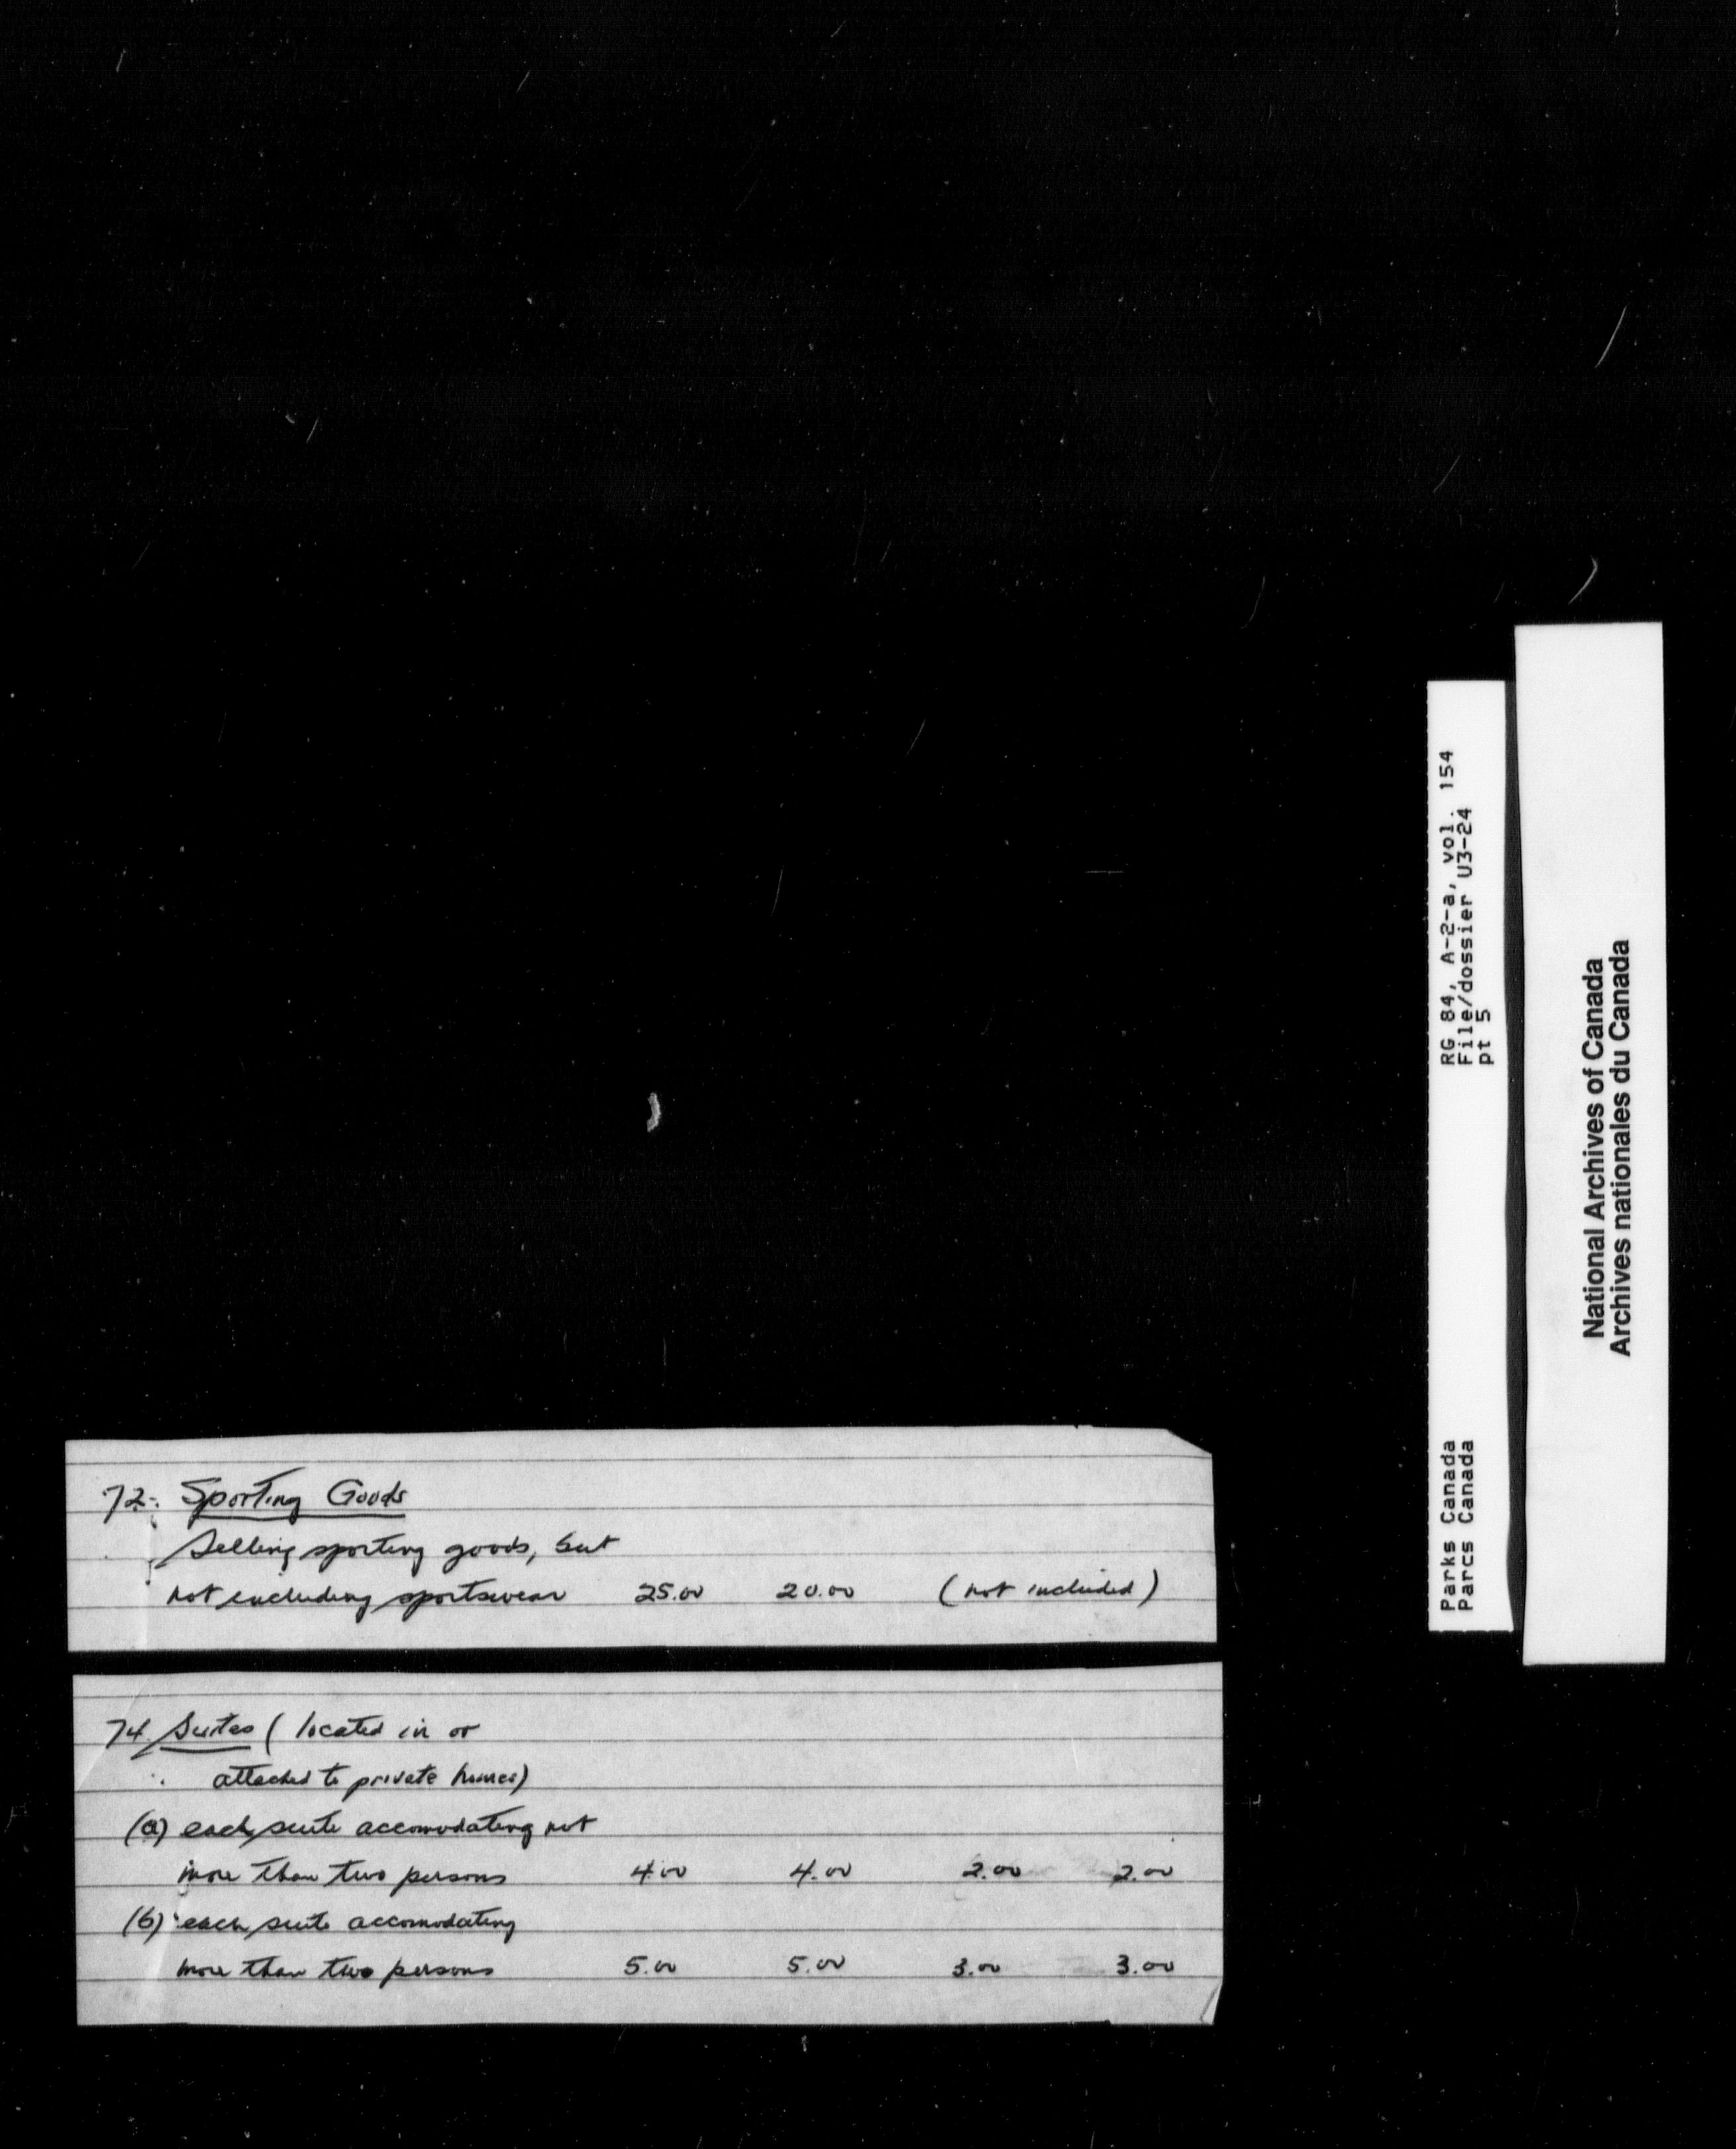 72. Sporting Goods
Selling sporting goods, but
not including sportswear 25.00 20.00 (not included)
74. Suites (located in or
attached to private homes)
(a) each suite accomodating not
more than two persons 4.00 4.00 2.00 2.00
(b) each suite accomodating
more than two persons 5.00 5.00 3.00 3.00
RG 84, A-2-a, vol. 154
File/dossier U3-24
pt 5
Parks Canada
Parcs Canada
National Archives of Canada
Archives nationales du Canada